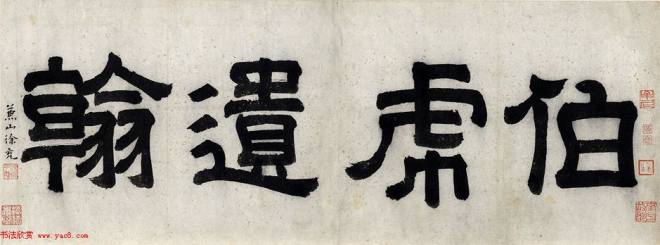 伯虎遺翰
燕山徐尭
书法欣赏 www.yac8.com